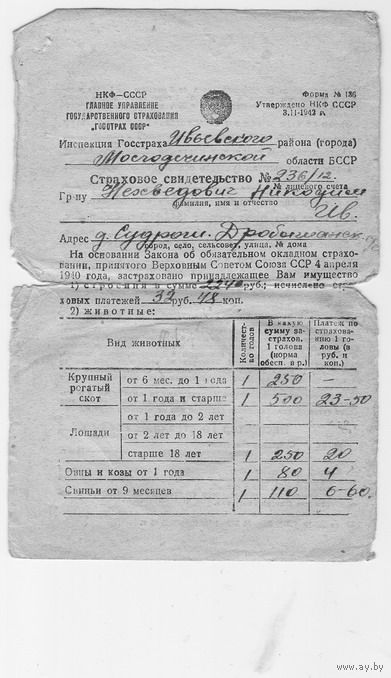 НКФ—СССР
ГЛАВНОЕ УПРАВЛЕНИЕ
ГОСУДАРСТВЕННОГО СТРАХОВАНИЯ
„ГОССТРАХ СССР"
Форма № 136
Утверждено НКФ СССР
3.II-1942 г.
Инспекция Госстраха Ивьевского района (города)
Молодечинской области БССР
Страховое свидетельство № 236/12.
№ лицевого счета
Гр-ну Нехведович Никодим
фамилия, имя и отчество
Ив.
Адрес д. Судроги
город, село, сельсовет, улица, № дома
На основании Закона об обязательном окладном страхо-
вании, принятого Верховным Советом Союза ССР 4 апреля
1940 года, застраховано принадлежащее Вам имущество
1) строения в сумме руб.; исчислено стра-
ховых платежей 32 руб. 48 коп.
2) животные:
Вид животных
Количест-
во голов
В какую
сумму за-
страхов.
1 голова
(норма
обесп. в р.)
Платеж по
страхова-
нию 1 го-
ловы (в
руб. и
коп.)
Крупный рогатый скот
от 6 мес. до 1 года 1 250 —
от 1 года и старше 1 500 23-50
Лошади
от 1 года до 2 лет
от 2 лет до 18 лет
старше 18 лет 1 250 20
Овцы и козы от 1 года 1 80 4
Свиньи от 9 месяцев 1 110 6-60.
www.ay.by